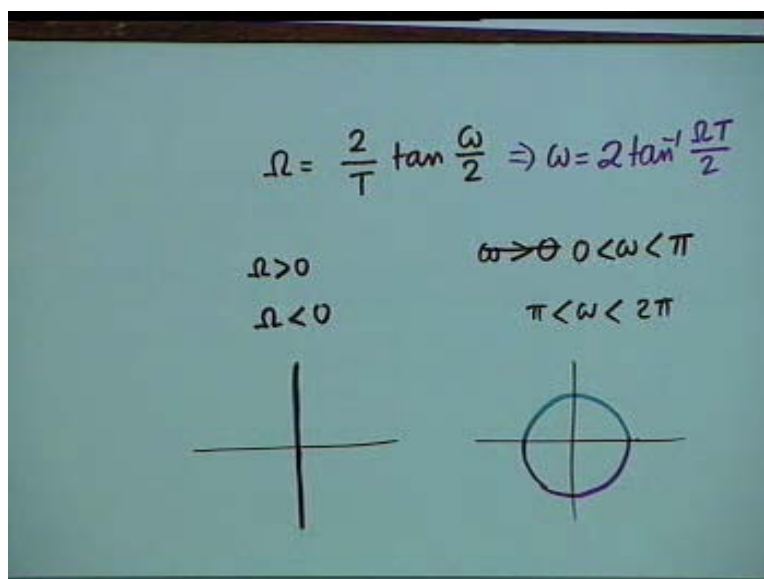 Ω = 2/T tan ω/2 ⇒ ω = 2 tan⁻¹ ΩT/2
Ω>0 ~~ω>0~~ 0<ω<π
Ω<0 π<ω<2π